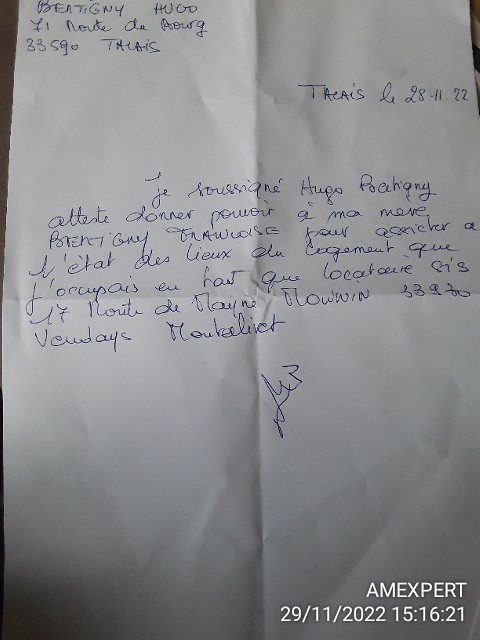 BERTIGNY HUGO
71 Route du Bourg
33590 TALAIS
TALAIS le 28.11.22
Je soussigné Hugo Bertigny
atteste donner pouvoir à ma mère
BERTIGNY FRANCOISE pour assister a
l'état des lieux du logement que
j'occupais en tant que locataire sis
17 Route de Mayne 33930
Vendays Montalivet
AMEXPERT
29/11/2022 15:16:21